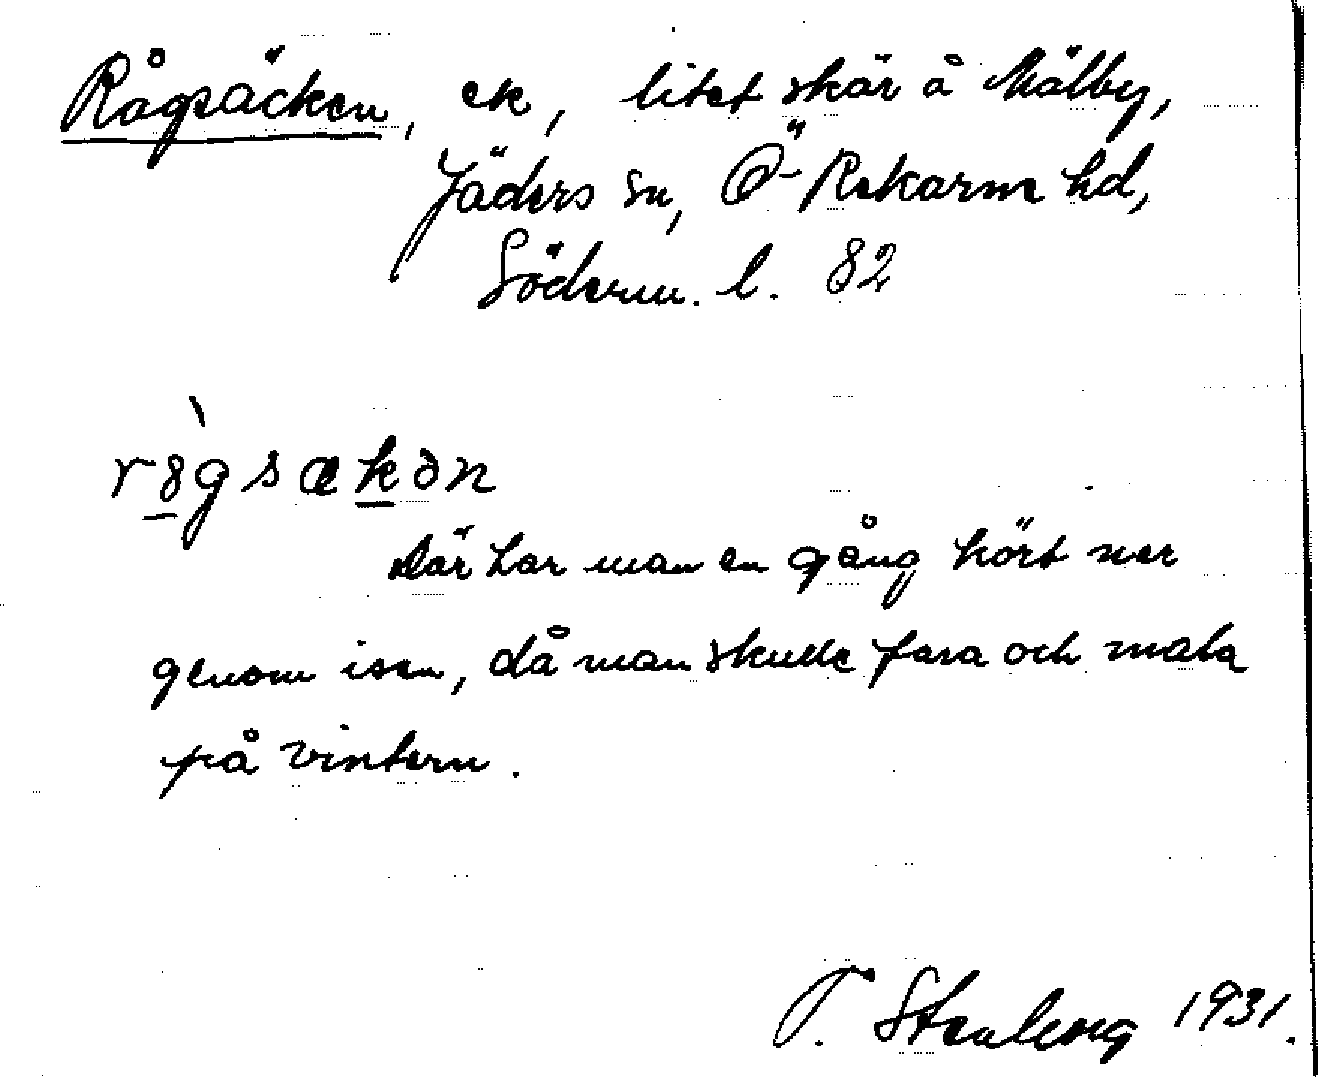 Rågsäcken, ek, litet skär å Mälby,
Jäders sn, Ö-Rekarne hd,
Söderm. l. 82
r8̲̀gsæk̲ən
Där har man en gång kört ner
genom isen, då man skulle fara och mala
på vintern.
T. Stenberg 1931.